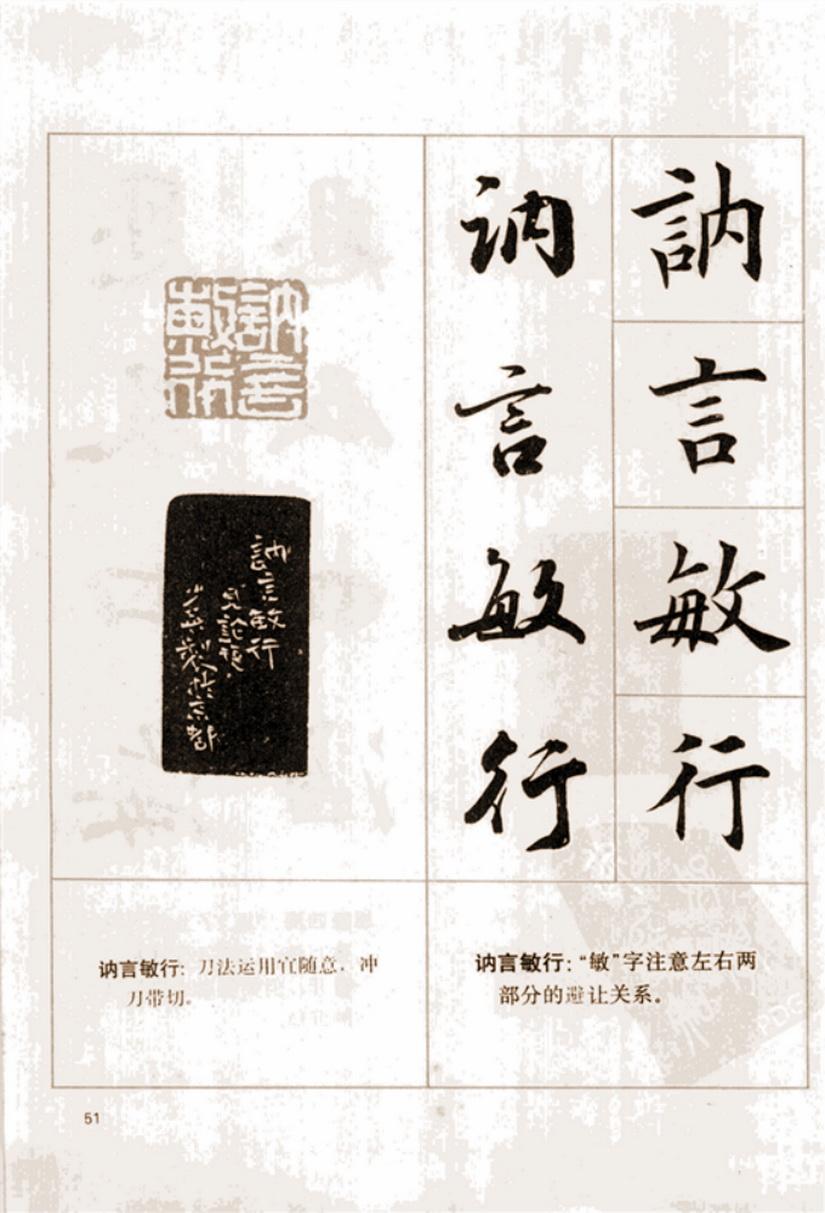 訥言敏行
讷言敏行
訥言敏行
訥言敏行
見論語
製於京都
讷言敏行：“敏”字注意左右两
部分的避让关系。
讷言敏行：刀法运用宜随意，冲
刀带切。
51